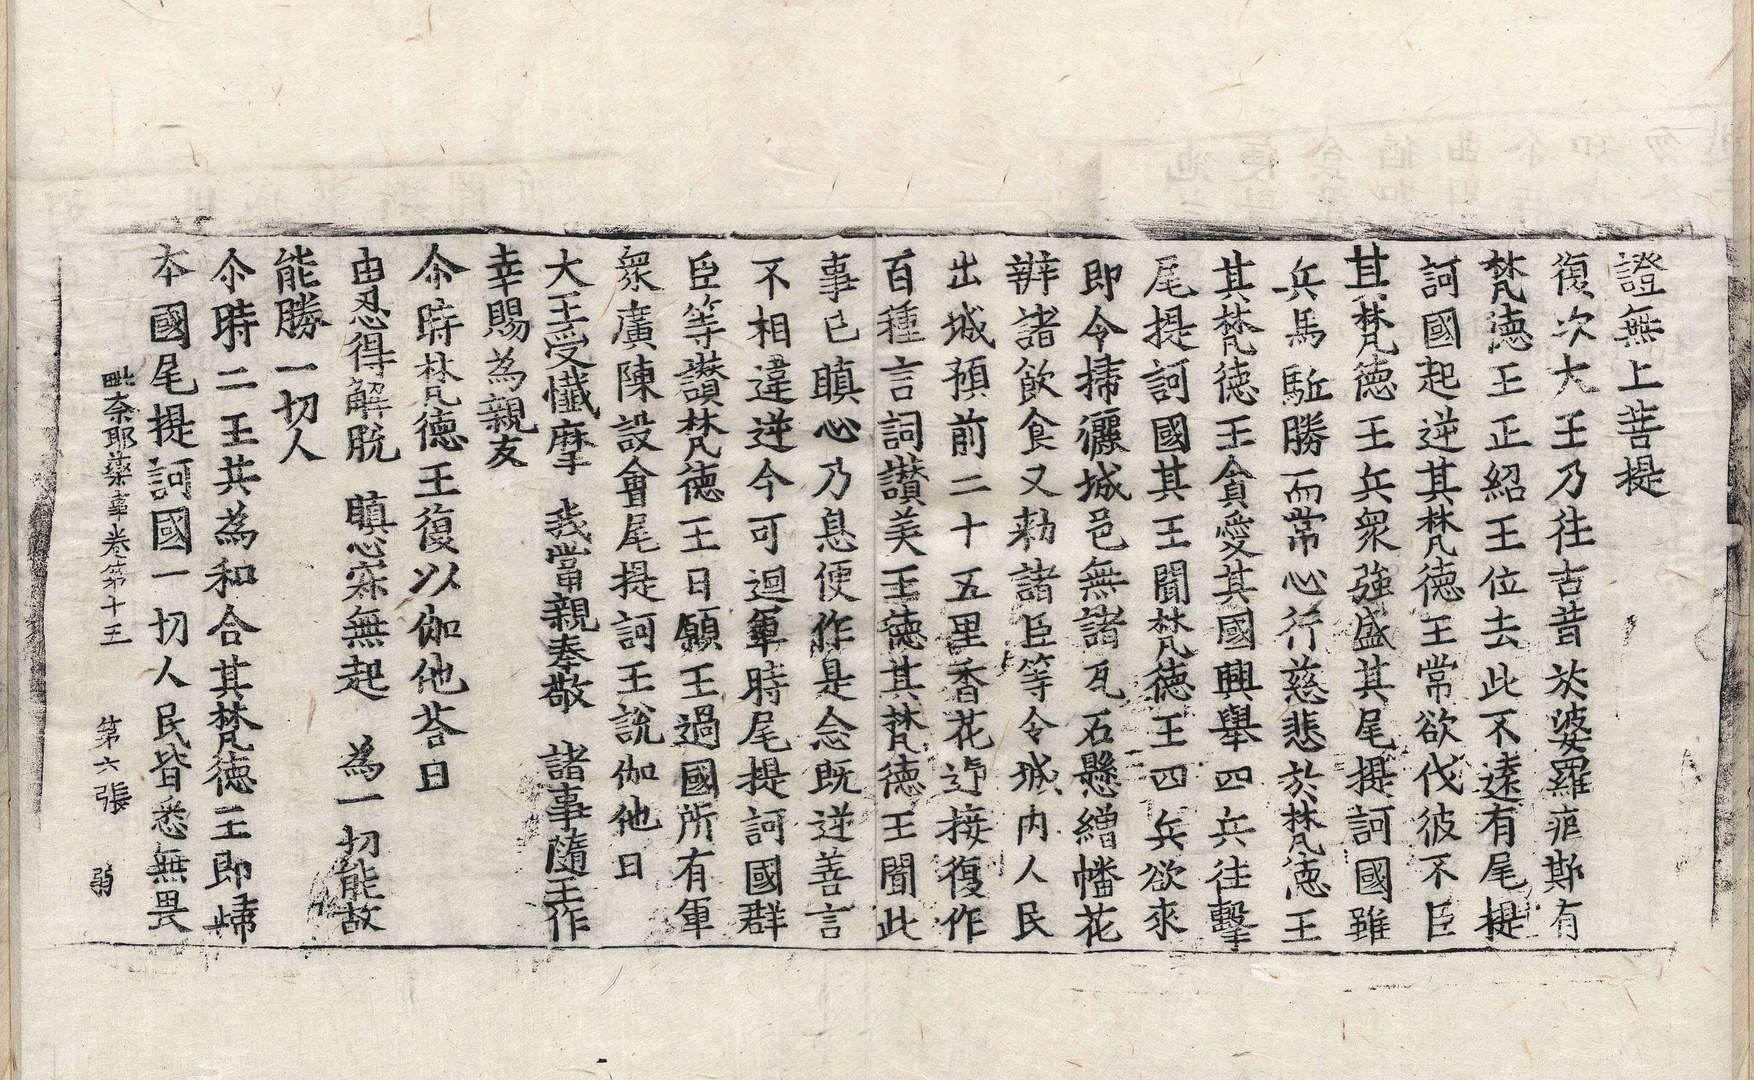 證無上菩提
復次大王乃往古昔於婆羅疪斯有
梵德王正紹王位去此不遠有尾提
訶國起逆其梵德王常欲伐彼不臣
其梵德王兵衆強盛其尾提訶國雖
兵馬駈勝而常心行慈悲於梵德王
其梵德王貪愛其國興舉四兵往擊
尾提訶國其王聞梵德王四兵欲來
即令掃灑城邑無諸瓦石懸繒幡花
辦諸飲食又勑諸臣等令城內人民
出城預前二十五里香花迎接復作
百種言詞讃美王德其梵德王聞此
事已瞋心乃息便作是念旣逆善言
不相違逆今可迴軍時尾提訶國群
臣等讃梵德王曰願王過國所有軍
衆廣陳設會尾提訶王說伽他曰
大王受懺摩　我當親奉敬　諸事隨王作
幸賜為親友
尒時梵德王復以伽他荅曰
由忍得解脫　瞋心寂無起　為一切能故
能勝一切人
尒時二王共為和合其梵德王即歸
本國尾提訶國一切人民皆悉無畏
毗奈耶藥事卷第十三　第六張　弱